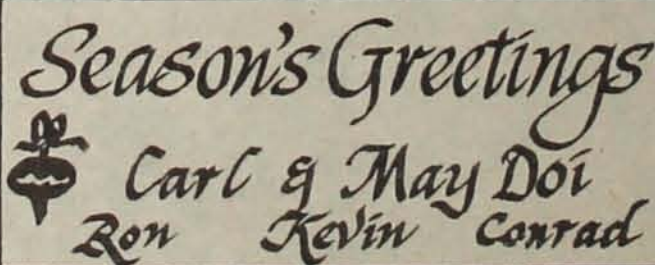 Season's Greetings
Carl & May Doi
Ron Kevin Conrad